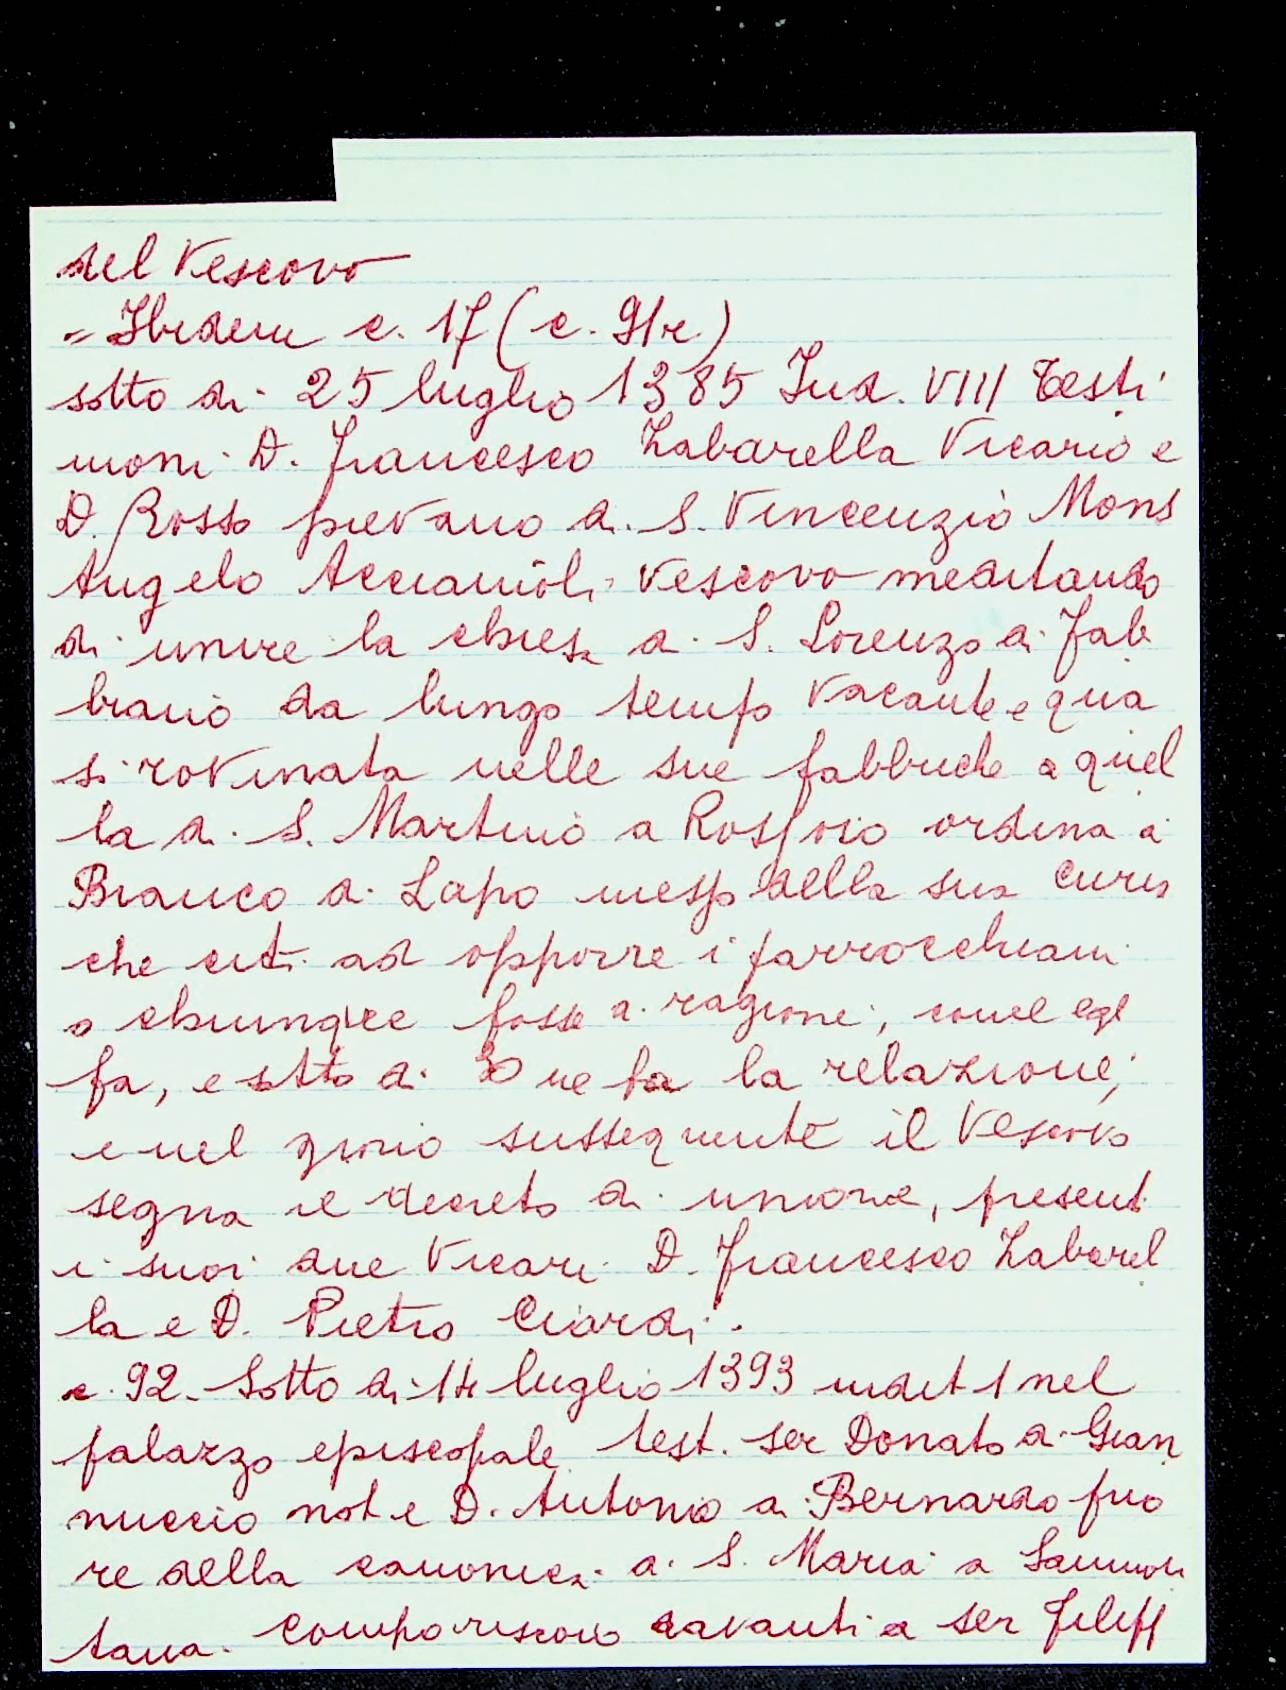 del Vescovo
= Ibidem c. 17 (c. 91r.)
sotto di 25 luglio 1385 Ind. VIII Testi
moni D. Francesco Zabarella Vicario e
D. Rosso pievano di S. Vincenzio Mons
Angelo Acciaiuoli Vescovo meditando
di unire la chiesa di S. Lorenzo a Fab
biano da lungo tempo vacante e qua
si rovinata nelle sue fabbriche a quel
la di S. Martino a Rosfoio ordina a
Bianco di Lapo messo della sua Curia
che citi ad opporre i parrocchiani
o chiunque fosse di ragione, come egli
fa, e sotto di 30 ne fa la relazione;
e nel giorno susseguente il Vescovo
segna il decreto di unione, presenti
i suoi due Vicari D. Francesco Zabarel
la e D. Pietro Ciardi.
c. 92. Sotto di 14 luglio 1393 indit 1 nel
palazzo episcopale test. ser Donato di Gian
nuccio not e D. Antonio di Bernardo prio
re della canonica di S. Maria a Sammon
tana. Compariscono davanti a ser Filipp